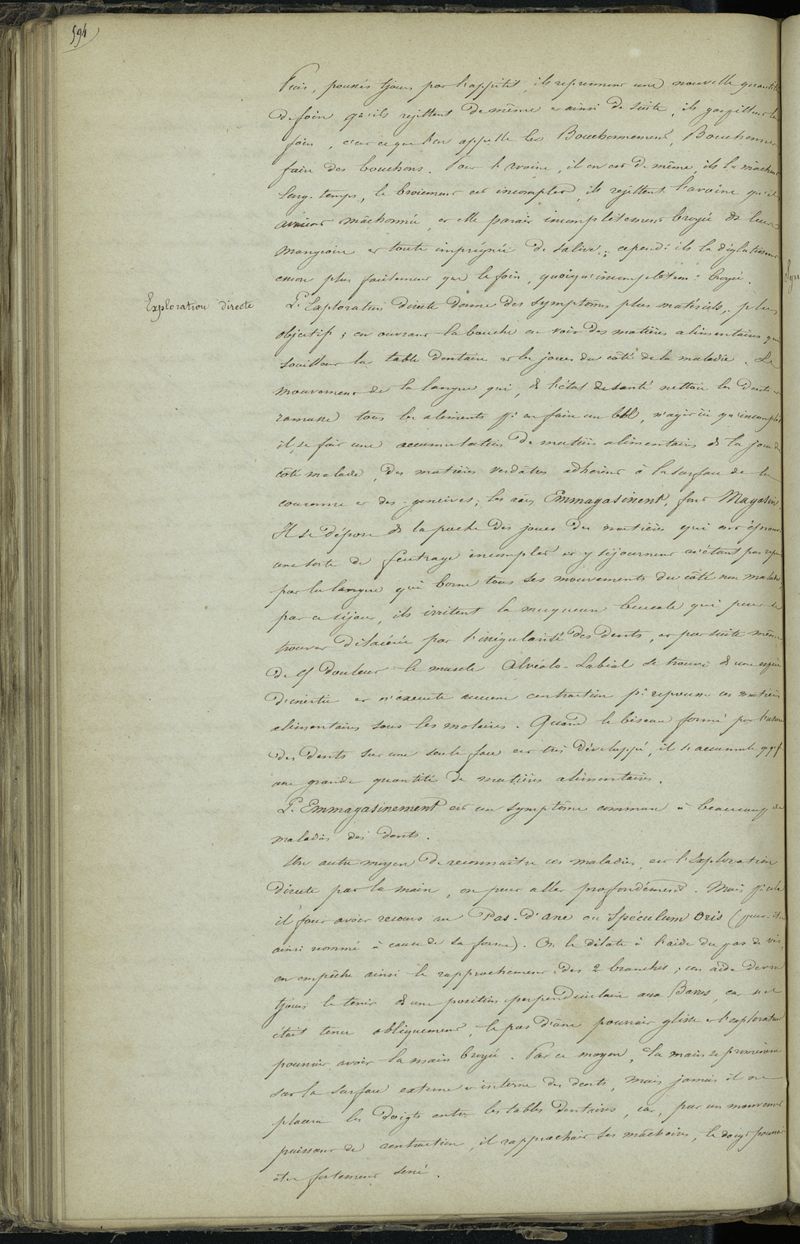 594
Puis, poussés tjours par l'appétit, ils reprennent une nouvelle quantité
de foin qu'ils rejettent de même et ainsi de suite, ils gaspillent le
foin, c'est ce que l'on appelle les Bouchonnement, Bouchonner
faire des bouchons. Pour l'avoine, il en est de même, ils la mâchent
long-temps, le broiement est incomplet, ils rejettent l'avoine qu'ils
avaient mâchonnée, et elle paraît incomplètement broyée ds leur
mangeoire et toute imprégnée de salive; cepend: ils la déglutissent
encore plus facilement que le foin, quoiqu'incomplètem: broyée.
Exploration directe
L'Exploration directe donne des symptômes plus matériels, plus
objectifs; en ouvrant la bouche on voit des matières alimentaires qui
souillent la table dentaire et les joues du côté de la maladie. Le
mouvement de la langue qui, ds l'état de santé nettoie les dents et
ramasse tous les aliments pr en faire un bol, n'agit ici qu'incomplet
il se fait une accumulation de matières alimentaires ds la joue du
côté malade, des matières verdâtres adhèrent à la surface de la
couronne et des gencives, les Emmagasinent, font Magasin.
Il se dépose ds la poche des joues des matières qui ont éprouvé
une sorte de feutrage incomplet et y séjournent n'étant pas repris
par la langue qui borne tous ses mouvements du côté non malade
par ce séjour, ils irritent la muqueuse buccale qui peut se
trouver dilacérée par l'irrégularité des dents, et par suite même
de cet douleur le muscle Alvéolo-Labial se trouve ds une espèce
d'inertie et n'exécute aucune contraction pr repousser ces matières
alimentaires sous les molaires. Quand le biseau formé par l'usure
des dents sur une seule face est très développé, il s'accumule qqf
une grande quantité de matières alimentaires.
L'Emmagasinement est un symptôme commun à beaucoup de
maladies des dents.
Un autre moyen de reconnaître ces maladies, est l'exploration
directe par la main, on peut aller profondément. Mais pr cela
il faut avoir recours au Pas-d'âne ou Speculum Oris (
ainsi nommé à cause de sa forme). On le dilate à l'aide du pas de vis,
on empêche ainsi le rapprochement des 2 branches; un aide devra
tjours le tenir ds une position perpendiculaire aux Barres, car s'il
était tenu obliquement, le pas d'âne pourrait glisser et l'explorateur
pourrait avoir la main broyée. Par ce moyen, la main se promène
sur la surface externe et interne des dents, mais jamais il ne
placera les doigts entre les tables dentaires, car, par un mouvement
puissant de contraction, il rapprochait ses mâchoires, le doigt pourrait
être fortement serré.